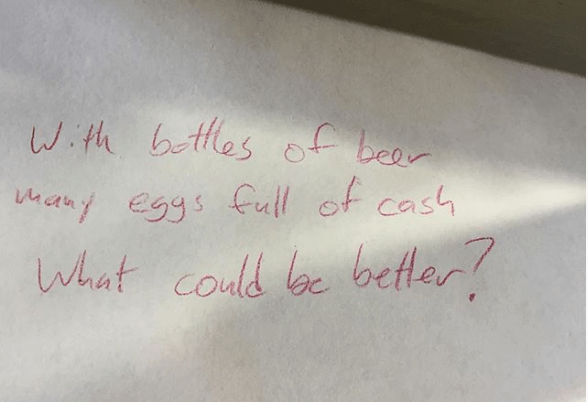 With bottles of beer
many eggs full of cash
What could be better?